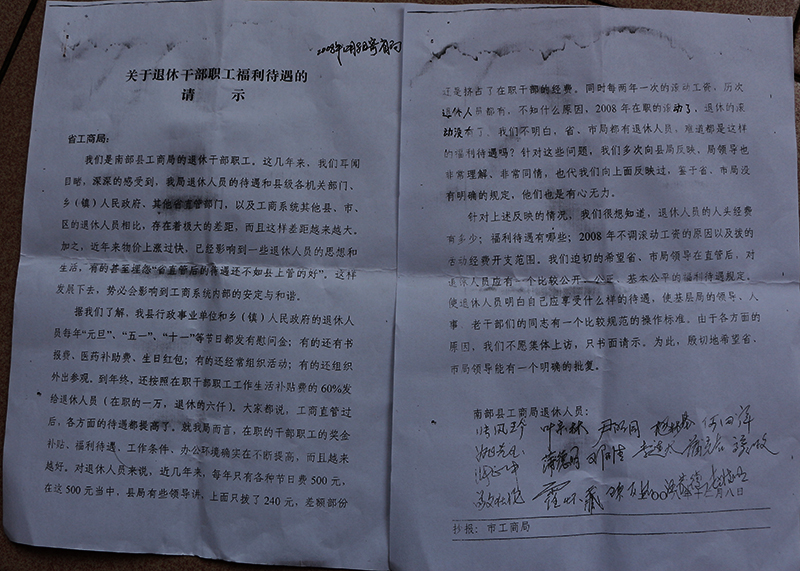 关于退休干部职工福利待遇的
请 示
省工商局：
我们是南部县工商局的退休干部职工。这几年来，我们耳闻
目睹，深深的感受到，我局退休人员的待遇和县级各机关部门、
乡（镇）人民政府、其他省直管部门，以及工商系统其他县、市、
区的退休人员相比，存在着极大的差距，而且这样差距越来越大。
加之，近年来物价上涨过快，已经影响到一些退休人员的思想和
生活，有的甚至埋怨“省直管后的待遇还不如县上管的好”。这样
发展下去，势必会影响到工商系统内部的安定与和谐。
据我们了解，我县行政事业单位和乡（镇）人民政府的退休人
员每年“元旦”、“五一”、“十一”等节日都发有慰问金；有的还有书
报费、医药补助费、生日红包；有的还经常组织活动；有的还组织
外出参观。到年终，还按照在职干部职工工作生活补贴费的60%发
给退休人员（在职的一万，退休的六仟）。大家都说，工商直管过
后，各方面的待遇都提高了。就我局而言，在职的干部职工的奖金
补贴、福利待遇、工作条件、办公环境确实在不断提高，而且越来
越好。对退休人员来说，近几年来，每年只有各种节日费500元，
在这500元当中，县局有些领导讲，上面只拨了240元，差额部份
还是挤占了在职干部的经费。同时每两年一次的滚动工资，历次
退休人员都有，不知什么原因，2008年在职的滚动了，退休的滚
动没有了。我们不明白，省、市局都有退休人员，难道都是这样
的福利待遇吗？针对这些问题，我们多次向县局反映，局领导也
非常理解、非常同情，也代我们向上面反映过，鉴于省、市局没
有明确的规定，他们也是有心无力。
针对上述反映的情况，我们很想知道，退休人员的人头经费
有多少；福利待遇有哪些；2008年不调滚动工资的原因以及拨的
活动经费开支范围。我们迫切的希望省、市局领导在直管后，对
退休人员应有一个比较公开、公正、基本公平的福利待遇规定，
使退休人员明白自己应享受什么样的待遇，使基层局的领导、人
事、老干部们的同志有一个比较规范的操作标准。由于各方面的
原因，我们不愿集体上访，只书面请示。为此，殷切地希望省、
市局领导能有一个明确的批复。
南部县工商局退休人员：
月八日
抄报：市工商局